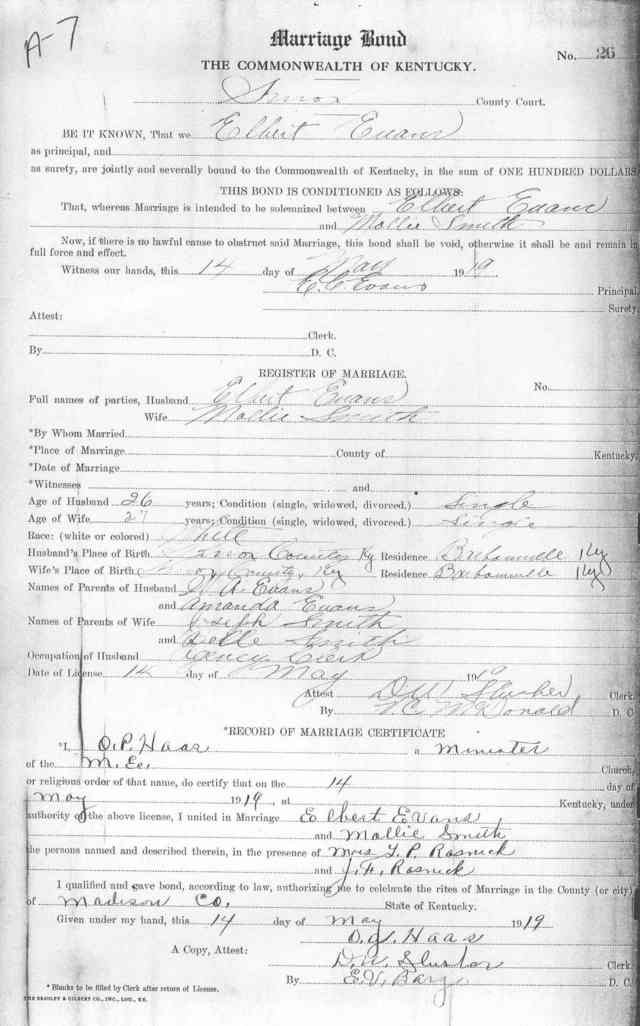 A-7
Marriage Bond
No. 26
THE COMMONWEALTH OF KENTUCKY.
Knox County Court.
BE IT KNOWN, That we Elbert Evans
as principal, and
as surety, are jointly and severally bound to the Commonwealth of Kentucky, in the sum of ONE HUNDRED DOLLARS
THIS BOND IS CONDITIONED AS FOLLOWS:
That, whereas Marriage is intended to be solemnized between Elbert Evans
and Mollie Smith
Now, if there is no lawful cause to obstruct said Marriage, this bond shall be void, otherwise it shall be and remain in
full force and effect.
Witness our hands, this 14 day of May 1919
E. C. Evans Principal,
Surety.
Attest:
Clerk.
By D. C.
REGISTER OF MARRIAGE.
No.
Full names of parties, Husband Elbert Evans
Wife Mollie Smith
*By Whom Married
*Place of Marriage County of Kentucky.
*Date of Marriage
*Witnesses and
Age of Husband 26 years; Condition (single, widowed, divorced.) Single
Age of Wife 27 years; Condition (single, widowed, divorced.) Single
Race: (white or colored) White
Husband's Place of Birth Knox County Ky Residence Barbourville Ky
Wife's Place of Birth Knox County, Ky Residence Barbourville Ky
Names of Parents of Husband A. Evans
and Amanda Evans
Names of Parents of Wife Joseph Smith
and Belle Smith
Occupation of Husband Clerk
Date of License 14 day of May 1919
Attest D. W. Slusher Clerk
By McDonald D. C
*RECORD OF MARRIAGE CERTIFICATE
*I, O. P. Haas a Minister
of the M. E. Church,
or religious order of that name, do certify that on the 14 day of
May 1919, at Kentucky, under
authority of the above license, I united in Marriage Elbert Evans
and Mollie Smith
the persons named and described therein, in the presence of Mrs T. P. Rosnick
and J. F. Rosnick
I qualified and gave bond, according to law, authorizing me to celebrate the rites of Marriage in the County (or city)
of Madison Co. State of Kentucky.
Given under my hand, this 14 day of May 1919
Haas
A Copy, Attest: D. W. Slusher Clerk
By E. V. D. C.
* Blanks to be filled by Clerk after return of License.
THE BRADLEY & GILBERT CO., INC., LOU., KY.